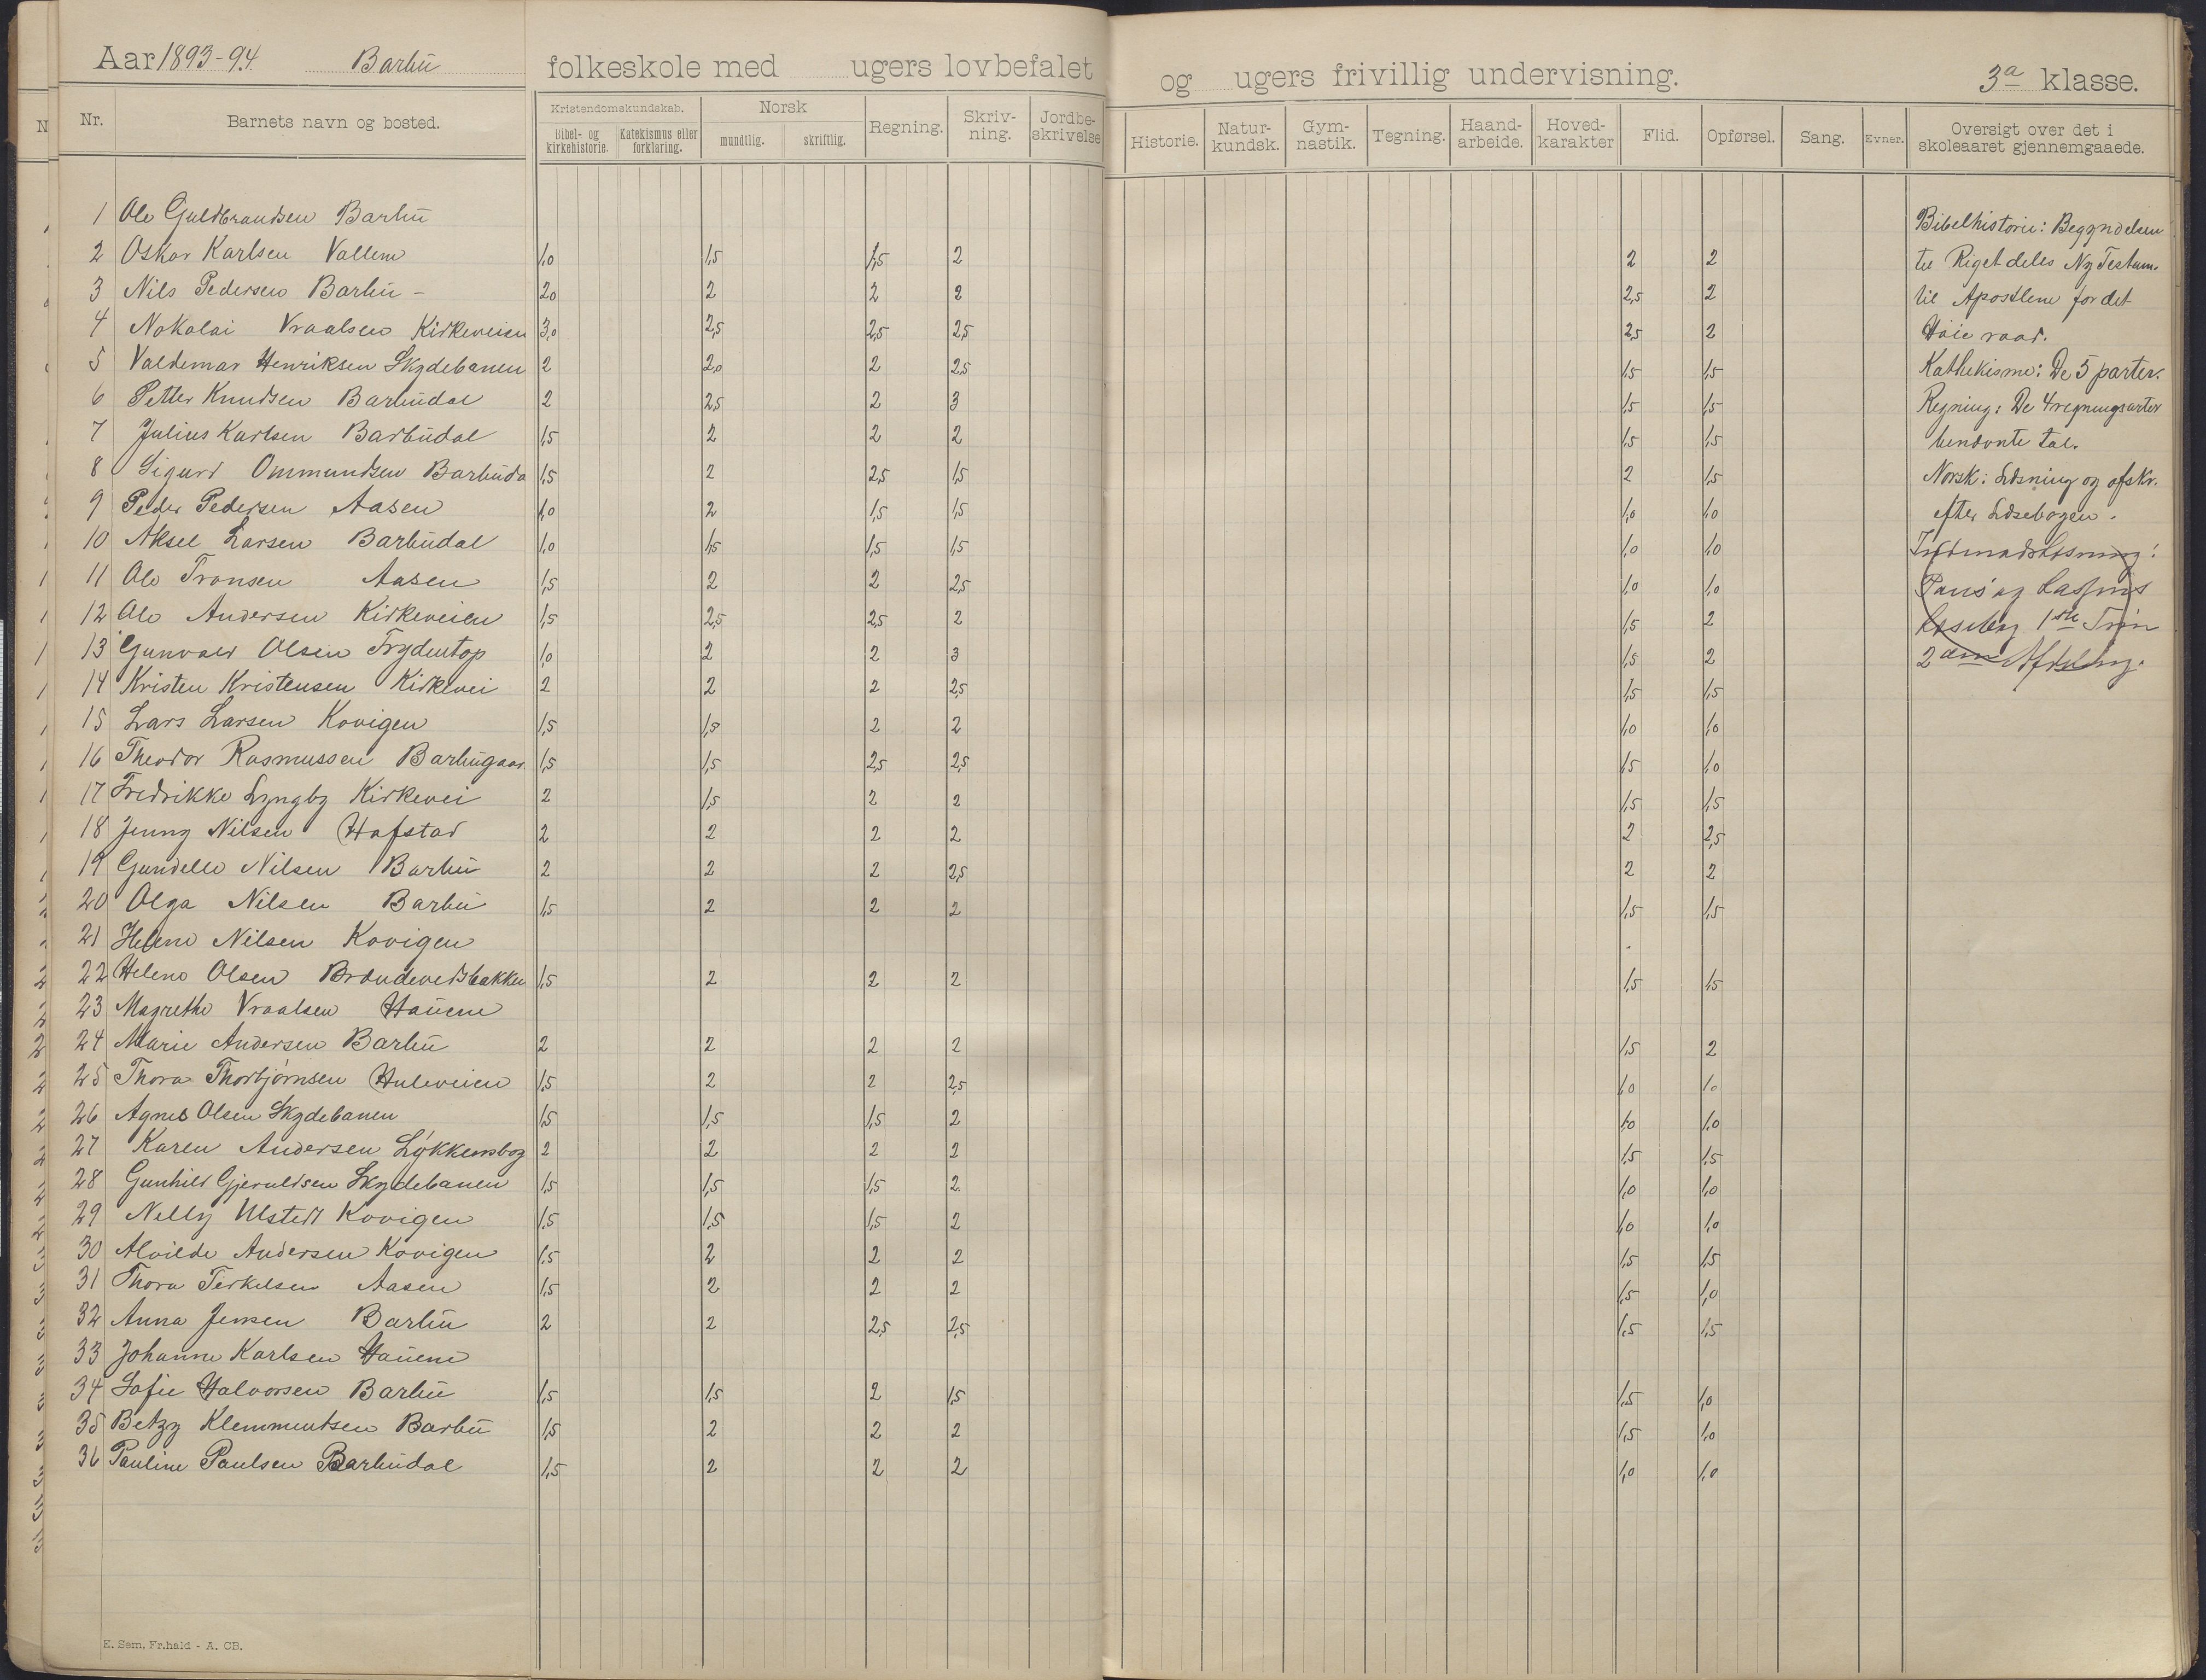 Aar 1893-94. Barbu folkeskole med ugers lovbefalet og ugers frivillig undervisning. 3a klasse.
Nr. Barnets navn og bosted. Kristendomskundskab. Bibel- og kirkehistorie. Katekismus eller forklaring. Norsk mundtlig. skriftlig. Regning. Skriv-ning. Jordbe-skrivelse Historie. Natur-kundsk. Gym-nastik. Tegning. Haand-arbeide. Hoved-karakter Flid. Opførsel. Sang. Evner. Oversigt over det i skoleaaret gjennemgaaede.
1 Ole Guldbrandsen Barbu
2 Oskar Karlsen Vallem 1,0 1,5 1,5 2 2 2
3 Nils Pedersen Barbu - 2,0 2 2 2 2,5 2
4 Nokolai Vraalsen Kirkeveien 3,0 2,5 2,5 2,5 2,5 2
5 Valdemar Henriksen Skydebanen 2 2,0 2 2,5 1,5 1,5
6 Petter Knudsen Barbudal 2 2,5 2 3 1,5 1,5
7 Julius Karlsen Barbudal 1,5 2 2 2 1,5 1,5
8 Sigurd Ommundsen Barbuda 1,5 2 2,5 1,5 2 1,5
9 Peder Pedersen Aasen 1,0 2 1,5 1,5 1,0 1,0
10 Aksel Larsen Barbudal 1,0 1,5 1,5 1,5 1,0 1,0
11 Ole Tronsen Aasen 1,5 2 2 2,5 1,0 1,0
12 Ole Andersen Kirkeveien 1,5 2,5 2,5 2 1,5 2
13 Gunvald Olsen Frydentop 1,0 2 2 3 1,5 2
14 Kristen Kristensen Kirkevei 2 2 2 2,5 1,5 1,5
15 Lars Larsen Kovigen 1,5 1,5 2 2 1,0 1,0
16 Theodor Rasmussen Barbugaar. 1,5 1,5 2,5 2,5 1,5 1,0
17 Fredrikke Lyngby Kirkevei 2 1,5 2 2 1,5 1,5
18 Jenny Nilsen Hafstad 2 2 2 2 2 2,5
19 Gundelle Nilsen Barbu 2 2 2 2,5 2 2
20 Olga Nilsen Barbu 1,5 2 2 2 1,5 1,5
21 Helene Nilsen Kovigen
22 Helene Olsen Brændevedsbakken 1,5 2 2 2 1,5 1,5
23 Magrethe Vraalsen Hauene
24 Marie Andersen Barbu 2 2 2 2 1,5 2
25 Thora Thorbjørnsen Huleveien 1,5 2 2 2,5 1,0 1,0
26 Agnes Olsen Skydebanen 1,5 1,5 1,5 2 1,0 1,0
27 Karen Andersen Lykkensbog 2 2 2 2 1,5 1,5
28 Gunhild Gjeruldsen Skydebanen 1,5 1,5 1,5 2 1,0 1,0
29 Nelly Ulstedt Kovigen 1,5 1,5 1,5 2 1,0 1,0
30 Alvilde Andersen Kovigen 1,5 2 2 2 1,5 1,5
31 Thora Terkelsen Aasen 1,5 2 2 2 1,5 1,0
32 Anna Jensen Barbu 2 2 2,5 2,5 1,5 1,5
33 Johanne Karlsen Hauene
34 Sofie Halvorsen Barbu 1,5 1,5 2 1,5 1,5 1,0
35 Betzy Klemmentsen Barbu 1,5 2 2 2 1,5 1,0
36 Pauline Paulsen Barbudal 1,5 2 2 2 1,0 1,0
Bibelhistorie: Begyndelsen
til Riget deles Ny Testam.
til Apostlene for det
Høie raad.
Kathekisme: De 5 parter.
Regning: De 4 regningsarter
benævnte tal.
Norsk: Læsning og afskr.
efter Læsebogen.
Pauss og Lassens
Læsebog 1ste Trin
2den Afdeling.
E. Sem, Fr.hald - A. CB.